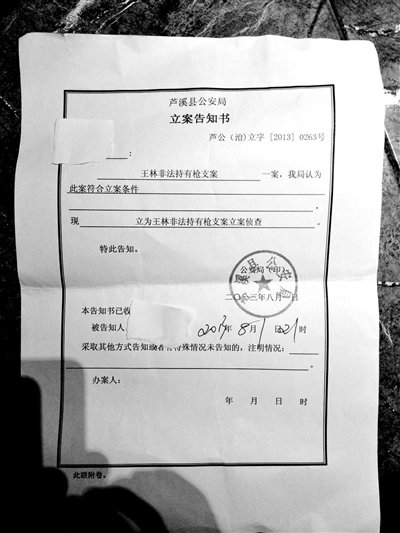 芦溪县公安局
立案告知书
芦公（治）立字［2013］0263号
：
王林非法持有枪支案 一案，我局认为
此案符合立案条件
。
现 立为王林非法持有枪支案立案侦查
特此告知。
公安局（印）
芦溪县公安局
二〇一三年八月一日
本告知书已收
被告知人 2013年8月1日21时
采取其他方式告知或者有特殊情况未告知的，注明情况：
。
办案人：
年 月 日 时
此联附卷。